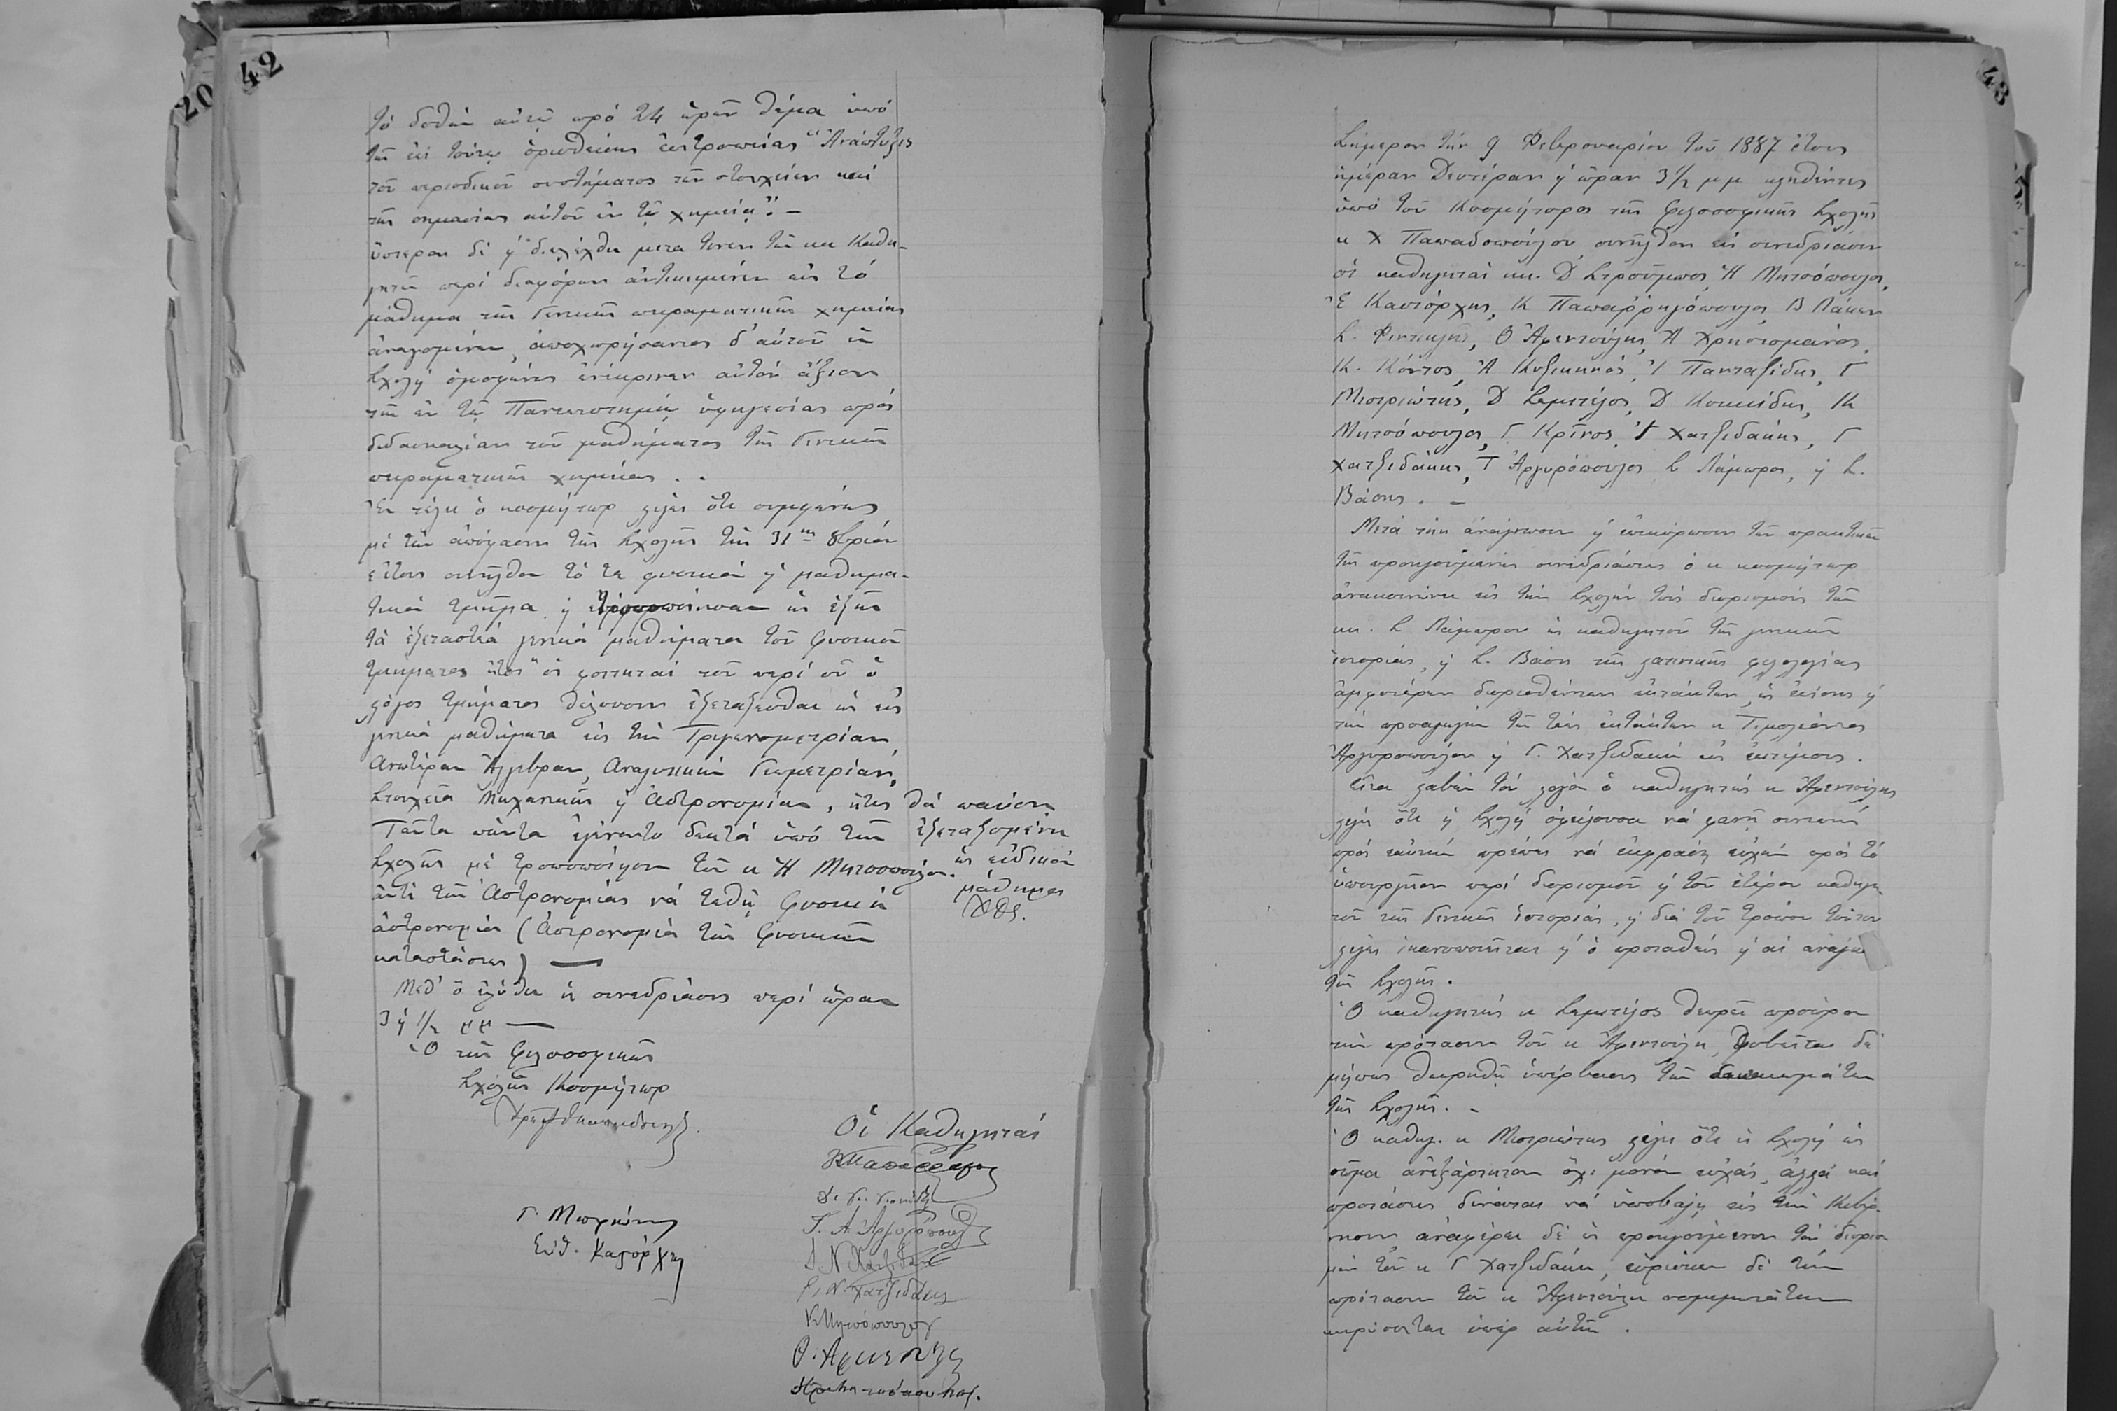 42
20
τὸ δοθὲν αὐτῷ πρὸ 24 ὡρῶν θέμα ὑπὸ
τῆς ἐπὶ τούτῳ ὁρισθείσης ἐπιτροπείας "Ἀνάπτυξις
τοῦ περιοδικοῦ συστήματος τῶν στοιχείων καὶ
τῆς σημασίας αὐτοῦ ἐν τῇ χημείᾳ". —
ὕστερον δὲ ἢ διελέχθη μετά τινων τῶν κκ Καθη-
γητῶν περὶ διαφόρων ἀντικειμένων εἰς τὸ
μάθημα τῆς Γενικῆς πειραματικῆς χημείας
ἀναγομένων, ἀποχωρήσαντος δ' αὐτοῦ ἡ
Σχολὴ ὁμοφώνως ἐνέκρινεν αὐτὸν ἄξιον
τῆς ἐν τῷ Πανεπιστημίῳ ὑφηγεσίας πρὸς
διδασκαλίαν τοῦ μαθήματος τῆς Γενικῆς
πειραματικῆς χημείας. -
Ἐν τέλει ὁ κοσμήτωρ λέγει ὅτι συμφώνως
μὲ τὴν ἀπόφασιν τῆς Σχολῆς τῆς 31ης 8βρίου
ε. ἔτους συνῆλθον τό τε φυσικὸν ϗ μαθημα-
τικὸν τμῆμα ϗ ὡς ἑξῆς
τὰ ἐξεταστέα γενικὰ μαθήματα τοῦ Φυσικοῦ
τμήματος ἤτοι "οἱ φοιτηταὶ τοῦ περὶ οὗ ὁ
λόγος τμήματος θέλουσιν ἐξετάζεσθαι ὡς εἰς
γενικὰ μαθήματα εἰς τὴν Τριγωνομετρίαν,
Ἀνωτέραν Ἄλγεβραν, Ἀναλυτικὴν Γεωμετρίαν,
Στοιχεῖα Μηχανικῆς ϗ Ἀστρονομίαν, ἥτις θὰ παύσῃ
ἐξεταζομένη
ὡς εἰδικὸν
μάθημα
Ταῦτα πάντα ἐγένοντο δεκτὰ ὑπὸ τῆς
Σχολῆς μὲ τροποποίησιν τοῦ κ Ἡ Μητσοπούλου.
ἀντὶ τῆς Ἀστρονομίας νὰ τεθῇ Φυσικὴ
ἀστρονομία (Ἀστρονομία τῆς Φυσικῆς
καταστάσεως) —
Μεθ' ὃ ἐλύθη ἡ συνεδρίασις περὶ ὥραν
3 ϗ 1/2 μμ —
Ὁ τῆς Φιλοσοφικῆς
Σχολῆς Κοσμήτωρ
Οἱ Καθηγηταί
Γ. Μιστριώτης
Εὐθ. Καστόρχης
Γ. Ν. Χατζιδάκις
Κ. Μητσόπουλος
Θ. Ἀφεντούλης
43
Σήμερον τὴν 9 Φεβρουαρίου τοῦ 1887 ἔτους
ἡμέραν Δευτέραν ϗ ὥραν 3 1/2 μμ κληθέντες
ὑπὸ τοῦ Κοσμήτορος τῆς Φιλοσοφικῆς Σχολῆς
κ Χ Παπαδοπούλου συνῆλθον εἰς συνεδρίασιν
οἱ καθηγηταὶ κκ. Δ Στρούμπος, Ἡ Μητσόπουλος,
Ἐ Καστόρχης, Κ Παπαρρηγόπουλος, Β Λάκων
Σ. Φιντικλῆς, Θ Ἀφεντούλης, Ἀ Χρηστομάνος,
Κ. Κόντος, Ἀ Κυζικηνός, Ἰ Πανταζίδης, Γ
Μιστριώτης, Δ Σεμιτέλος, Δ Κοκκίδης, Κ
Μητσόπουλος, Γ. Κρῖνος, Ἰ Χατζιδάκης, Γ
Χατζιδάκης, Τ Ἀργυρόπουλος, Σ Λάμπρος, ϗ Σ.
Βάσης. —
Μετὰ τὴν ἀνάγνωσιν ϗ ἐπικύρωσιν τῶν πρακτικῶν
τῆς προηγουμένης συνεδριάσεως ὁ κ κοσμήτωρ
ἀνακοινώνει εἰς τὴν Σχολὴν τοὺς διορισμοὺς τῶν
κκ. Σ Λάμπρου ὡς καθηγητοῦ τῆς γενικῆς
ἱστορίας, ϗ Σ. Βάση τῆς λατινικῆς φιλολογίας
ἀμφοτέρων διορισθέντων ἐκτάκτων, ὡς ἐπίσης ϗ
τὴν προαγωγὴν τῶν τέως ἐκτάκτων κ Τιμολέοντος
Ἀργυροπούλου ϗ Γ. Χατζιδάκη εἰς ἐπιτίμους.
Εἶτα λαβὼν τὸν λόγον ὁ καθηγητὴς κ Ἀφεντούλης
λέγει ὅτι ἡ Σχολὴ ὀφείλουσα νὰ φανῇ συνεπὴς
πρὸς ἑαυτὴν πρέπει νὰ ἐκφράσῃ εὐχὴν πρὸς τὸ
ὑπουργεῖον περὶ διορισμοῦ ϗ τοῦ ἑτέρου καθηγη-
τοῦ τῆς Γενικῆς ἱστορίας, ϗ διὰ τοῦ τρόπου τούτου
λέγει ἱκανοποιεῖται ϗ ὁ προταθεὶς ϗ αἱ ἀνάγκαι
τῆς Σχολῆς.
Ὁ καθηγητὴς κ Σεμιτέλος θεωρεῖ πρόωρον
τὴν πρότασιν τοῦ κ Ἀφεντούλη, φοβεῖται δὲ
μήπως θεωρηθῇ ὑπέρβασις τῶν δικαιωμάτων
τῆς Σχολῆς. -
Ὁ καθηγ. κ Μιστριώτης λέγει ὅτι ἡ Σχολὴ ὡς
σῶμα ἀνεξάρτητον ὄχι μόνον εὐχάς, ἀλλὰ καὶ
προτάσεις δύναται νὰ ὑποβάλῃ εἰς τὴν Κυβέρ-
νησιν ἀναφέρει δὲ ὡς προηγούμενον τὸν διορισ-
μὸν τοῦ κ Γ Χατζιδάκη, εὑρίσκει δὲ τὴν
πρότασιν τοῦ κ Ἀφεντούλη νομιμωτάτην
κηρύσσεται ὑπὲρ αὐτῆς.